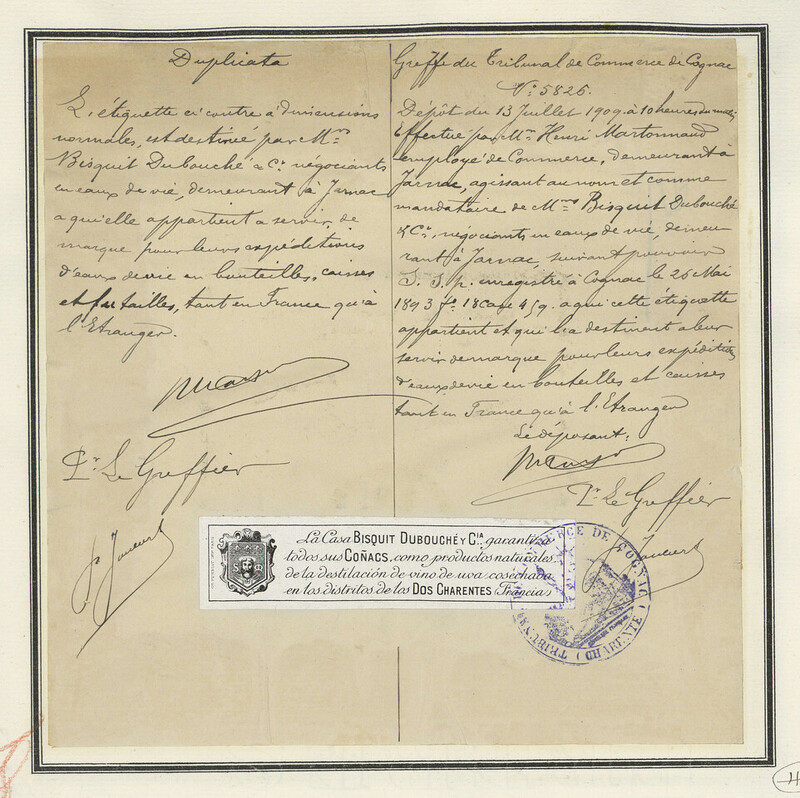 Duplicata
L'étiquette ci contre à dimensions
normales, est destinée par Mrs
Bisquit Dubouché & Cie négociants
en eaux de vie, demeurant à Jarnac
a qu'elle appartient a servir de
marque pour leurs expéditions
d'eaux de vie en bouteilles, caisses
et futailles, tant en France qu'à
l'Etranger.
Pr Le Greffier
Greffe du Tribunal de Commerce de Cognac
No 5826.
Dépôt du 13 Juillet 1909 à 10 heures du matin
Effectué par Mr Henri Martonnaud
employé de Commerce, demeurant à
Jarnac, agissant au nom et comme
mandataire de Mrs Bisquit Dubouché
& Cie, négociants en eaux de vie, demeu
rant à Jarnac, suivant pouvoir
S. S. p. enregistré à Cognac le 26 Mai
1893 fo 18 Case 459. a qui cette étiquette
appartient et qui l'a destinent a leur
servir de marque pour leurs expéditions
d'eaux de vie en bouteilles et caisses
tant en France qu'à l'Etranger
Le déposant:
Pr Le Greffier
La Casa BISQUIT DUBOUCHÉ Y CIA. garantiza
todos sus COÑACS, como productos naturales
de la destilación de vino de uva cosechada
en los distritos de los DOS CHARENTES (Francia)
TRIBUNAL DE COMMERCE DE COGNAC (CHARENTE)